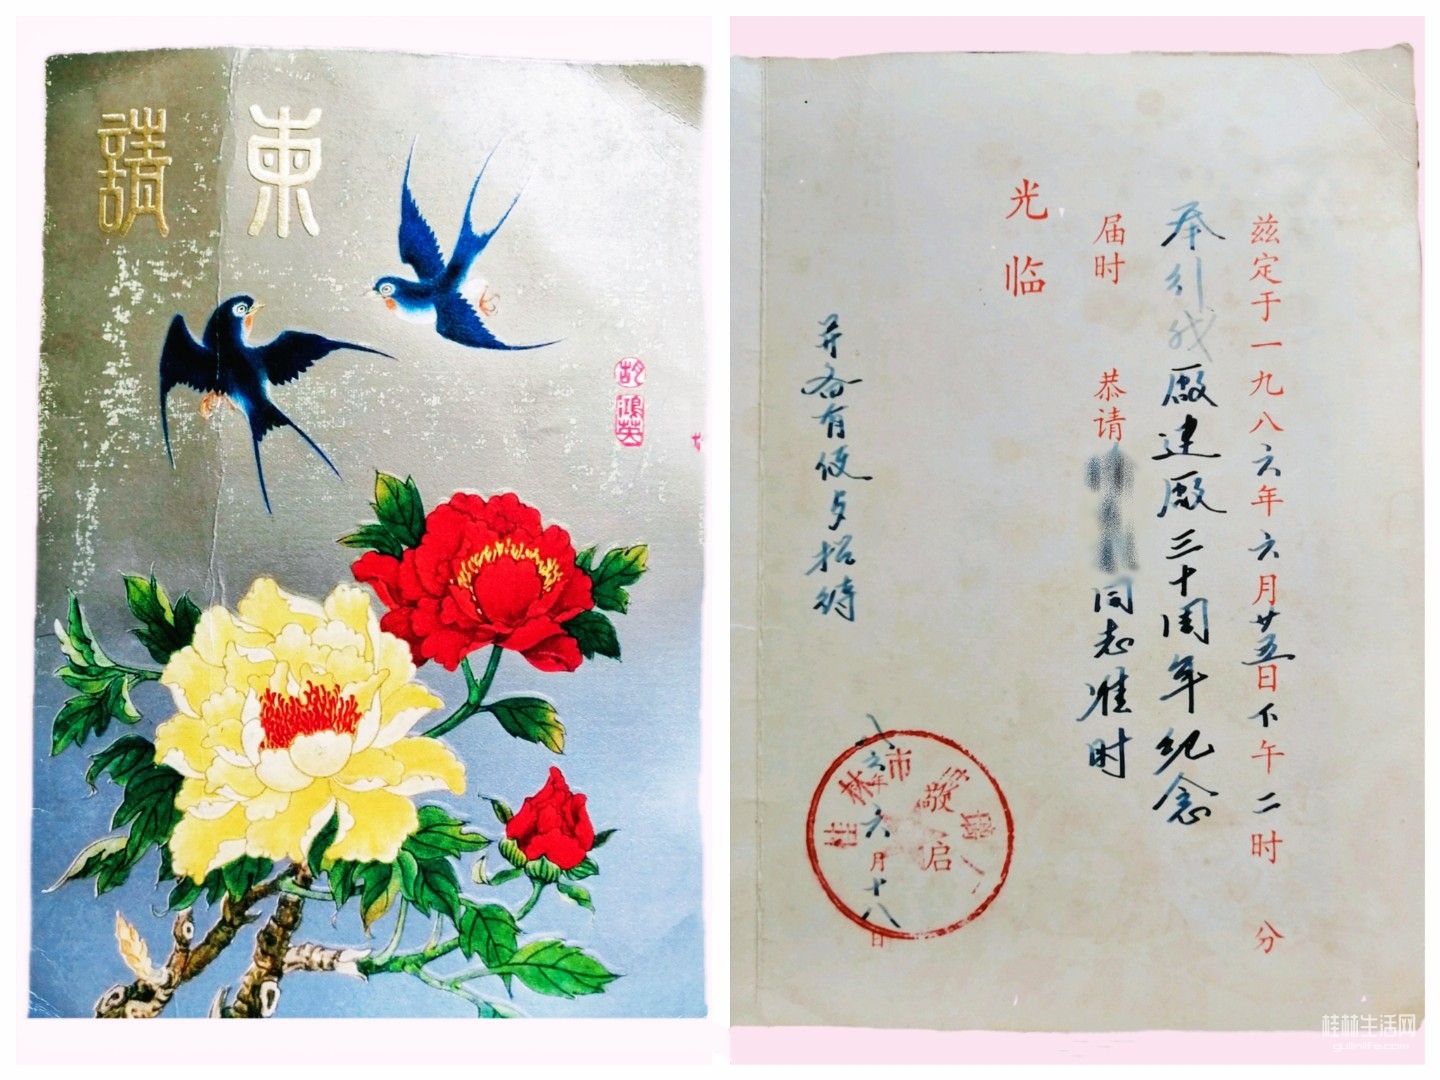 請柬
胡鴻英
兹定于一九八六年六月廿五日下午二时 分
举行我廠建廠三十周年纪念
届时 恭请 同志准时
光临
并备有便歺招待
桂林市
敬启
八六年六月十八日
桂林生活网
guilinlife.com